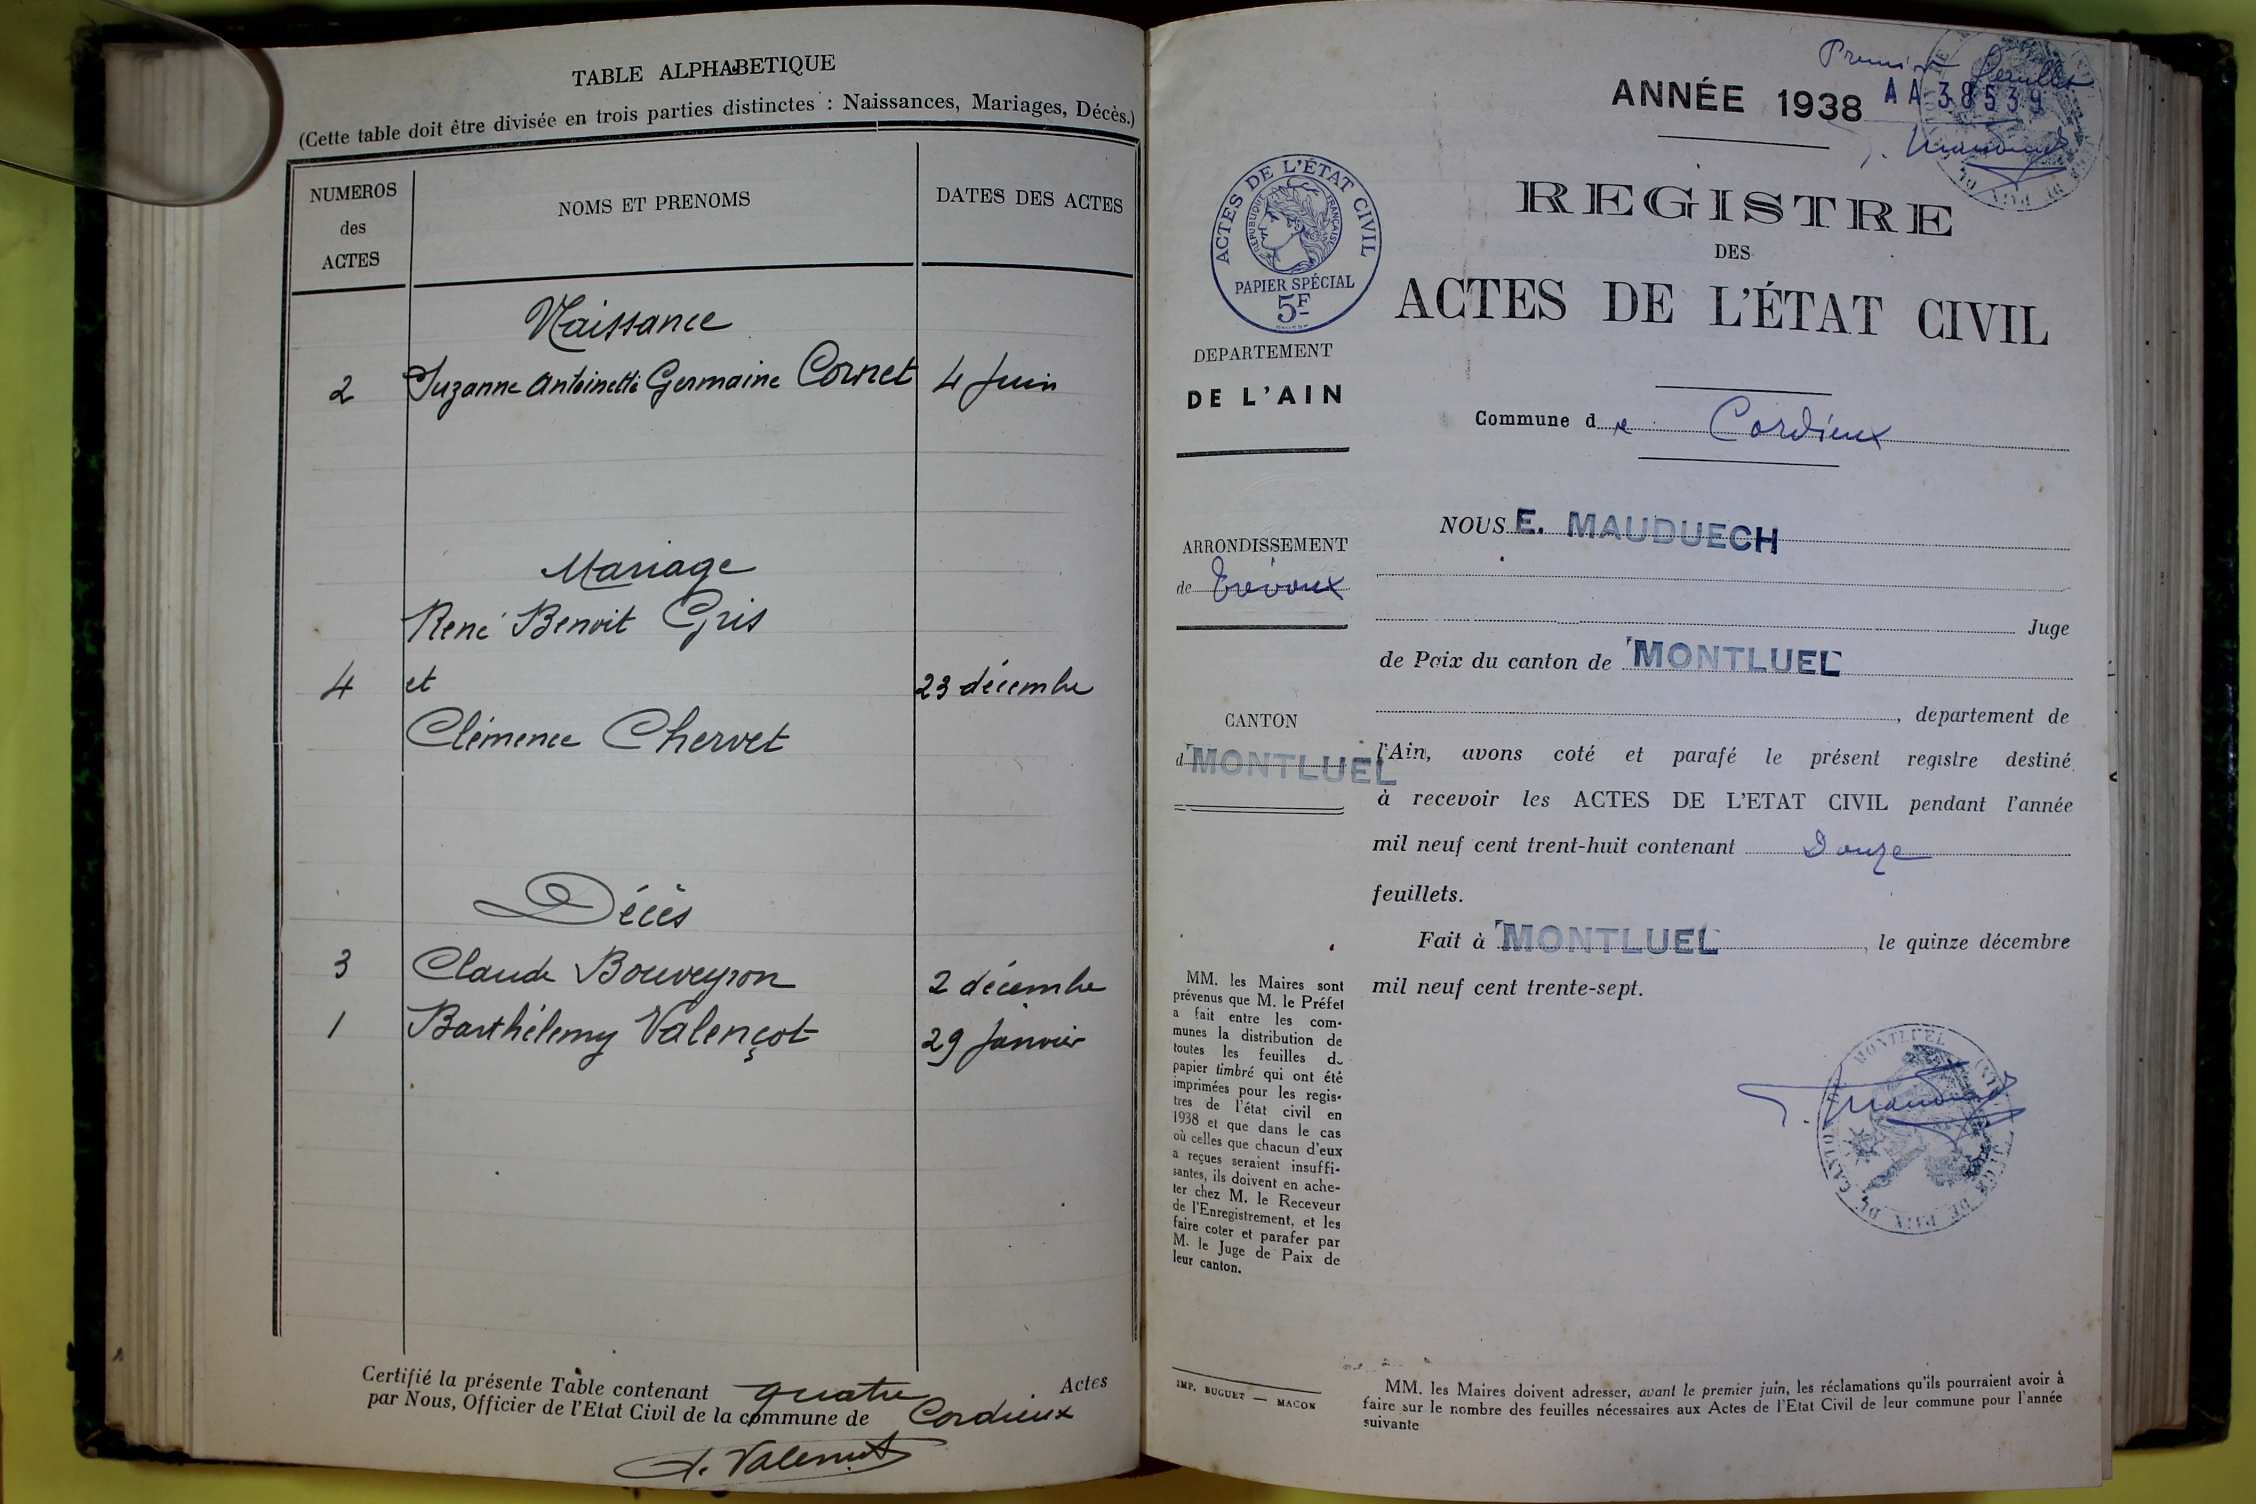 TABLE ALPHABETIQUE
(Cette table doit être divisée en trois parties distinctes : Naissances, Mariages, Décès.)
NUMEROS
des
ACTES
NOMS ET PRENOMS
DATES DES ACTES
Naissance
2 Suzanne Antoinette Germaine Cornet 4 Juin
Mariage
René Benoit Gris
4 et 23 décembre
Clémence Chervet
Décès
3 Claude Bouveyron 2 décembre
1 Barthélemy Valençot 29 Janvier
Certifié la présente Table contenant quatre Actes
par Nous, Officier de l'Etat Civil de la commune de Cordieux
Premier feuillet
ANNÉE 1938 AA 38539
ACTES DE L'ÉTAT CIVIL
RÉPUBLIQUE FRANÇAISE
PAPIER SPÉCIAL
5F
REGISTRE
DES
ACTES DE L'ÉTAT CIVIL
DEPARTEMENT
DE L'AIN
Commune de Cordieux
NOUS E. MAUDUECH
ARRONDISSEMENT
de Trévoux
Juge
de Paix du canton de MONTLUEL
CANTON
d MONTLUEL
, departement de
l'Ain, avons coté et parafé le présent registre destiné
à recevoir les ACTES DE L'ETAT CIVIL pendant l'année
mil neuf cent trent-huit contenant Douze
feuillets.
Fait à MONTLUEL, le quinze décembre
mil neuf cent trente-sept.
MM. les Maires sont
prévenus que M. le Préfet
a fait entre les com-
munes la distribution de
toutes les feuilles du
papier timbré qui ont été
imprimées pour les regis-
tres de l'état civil en
1938 et que dans le cas
où celles que chacun d'eux
a reçues seraient insuffi-
santes, ils doivent en ache-
ter chez M. le Receveur
de l'Enregistrement, et les
faire coter et parafer par
M. le Juge de Paix de
leur canton.
IMP. BUGUET — MACON
MM. les Maires doivent adresser, avant le premier juin, les réclamations qu'ils pourraient avoir à
faire sur le nombre des feuilles nécessaires aux Actes de l'Etat Civil de leur commune pour l'année
suivante